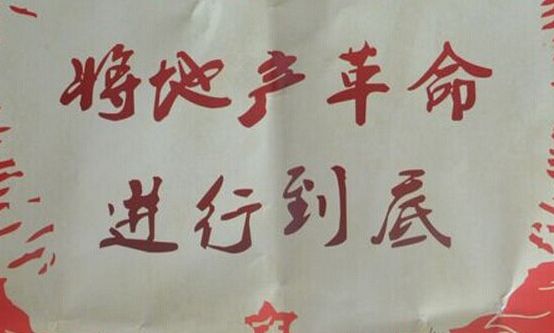 将地产革命
进行到底